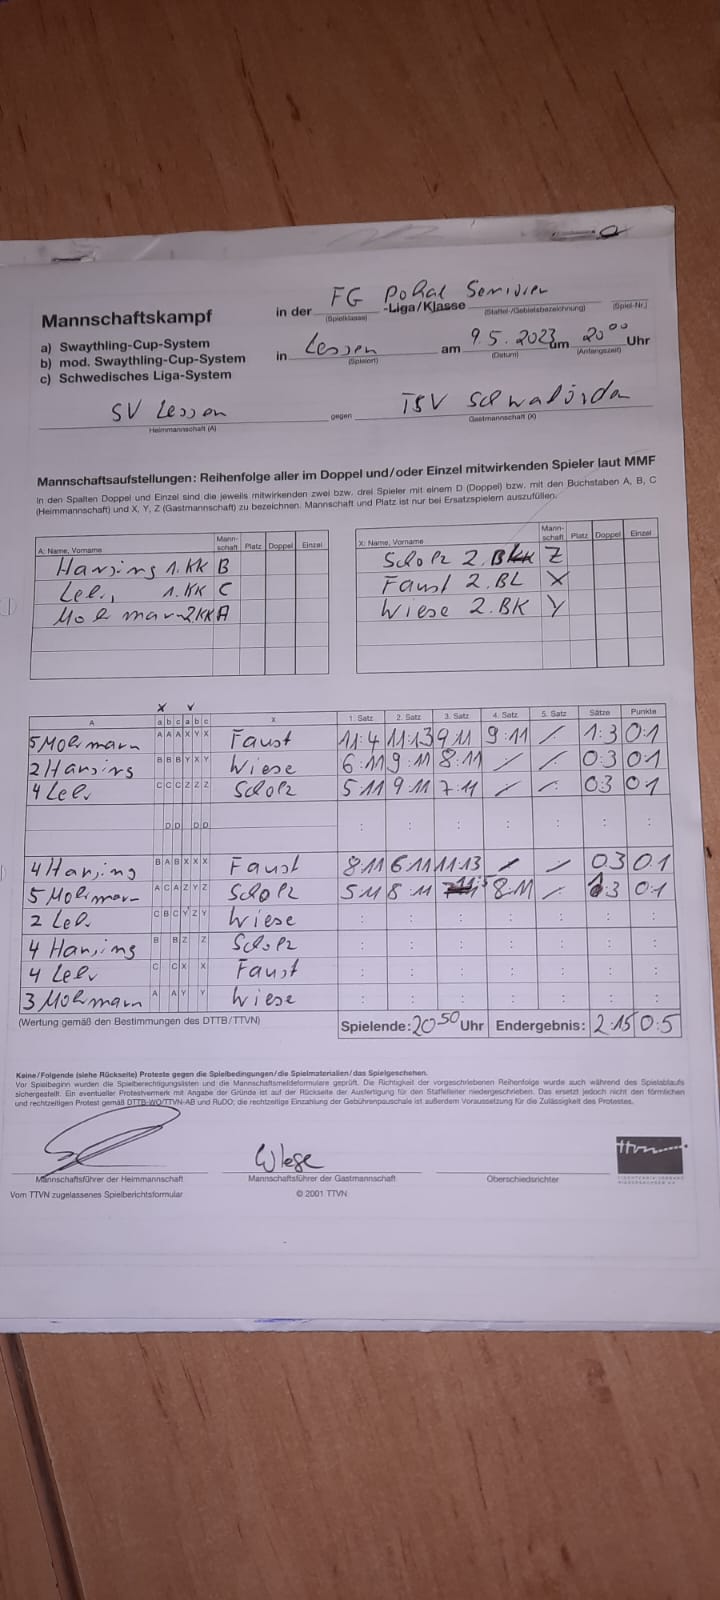 FG Pokal Senioren
Mannschaftskampf in der -Liga/Klasse
(Spielklasse) (Staffel-/Gebietsbezeichnung) (Spiel-Nr.)
a) Swaythling-Cup-System
b) mod. Swaythling-Cup-System in Lessen am 9.5.2023 um 20⁰⁰ Uhr
(Spielort) (Datum) (Anfangszeit)
c) Schwedisches Liga-System
SV Lessen gegen TSV Schwalförden
Heimmannschaft (A) Gastmannschaft (X)
Mannschaftsaufstellungen: Reihenfolge aller im Doppel und/oder Einzel mitwirkenden Spieler laut MMF
In den Spalten Doppel und Einzel sind die jeweils mitwirkenden zwei bzw. drei Spieler mit einem D (Doppel) bzw. mit den Buchstaben A, B, C
(Heimmannschaft) und X, Y, Z (Gastmannschaft) zu bezeichnen. Mannschaft und Platz ist nur bei Ersatzspielern auszufüllen.
A: Name, Vorname Mann-schaft Platz Doppel Einzel X: Name, Vorname Mann-schaft Platz Doppel Einzel
Hansing 1.KK B Scholz 2. Z
1.KK C Faust 2.BL X
Mohrmann 2KK A Wiese 2.BK Y
x v
A a b c a b c X 1. Satz 2. Satz 3. Satz 4. Satz 5. Satz Sätze Punkte
5 Mohrmann A A A X Y X Faust 11:4 11:13 9:11 9:11 / 1:3 0:1
2 Hansing B B B Y X Y Wiese 6:11 9:11 8:11 / / 0:3 0:1
4 C C C Z Z Z Scholz 5:11 9:11 7:11 / / 0:3 0:1
D D D D : : : : : : :
4 Hansing B A B X X X Faust 8:11 6:11 11:13 / / 0:3 0:1
5 Mohrmann A C A Z Y Z Scholz 5:11 8:11 8:11 / :3 0:1
2 C B C Y Z Y Wiese : : : : : : :
4 Hansing B B Z Z Scholz : : : : : : :
4 C C X X Faust : : : : : : :
3 Mohrmann A A Y Y Wiese : : : : : : :
(Wertung gemäß den Bestimmungen des DTTB/TTVN) Spielende: 20⁵⁰ Uhr Endergebnis: 2:15 0:5
Keine/Folgende (siehe Rückseite) Proteste gegen die Spielbedingungen/die Spielmaterialien/das Spielgeschehen.
Vor Spielbeginn wurden die Spielberechtigungslisten und die Mannschaftsmeldeformulare geprüft. Die Richtigkeit der vorgeschriebenen Reihenfolge wurde auch während des Spielablaufs
sichergestellt. Ein eventueller Protestvermerk mit Angabe der Gründe ist auf der Rückseite der Ausfertigung für den Staffelleiter niedergeschrieben. Das ersetzt jedoch nicht den förmlichen
und rechtzeitigen Protest gemäß DTTB-WO/TTVN-AB und RuDO; die rechtzeitige Einzahlung der Gebührenpauschale ist außerdem Voraussetzung für die Zulässigkeit des Protestes.
Wiese ttvn
Mannschaftsführer der Heimmannschaft Mannschaftsführer der Gastmannschaft Oberschiedsrichter
Vom TTVN zugelassenes Spielberichtsformular © 2001 TTVN